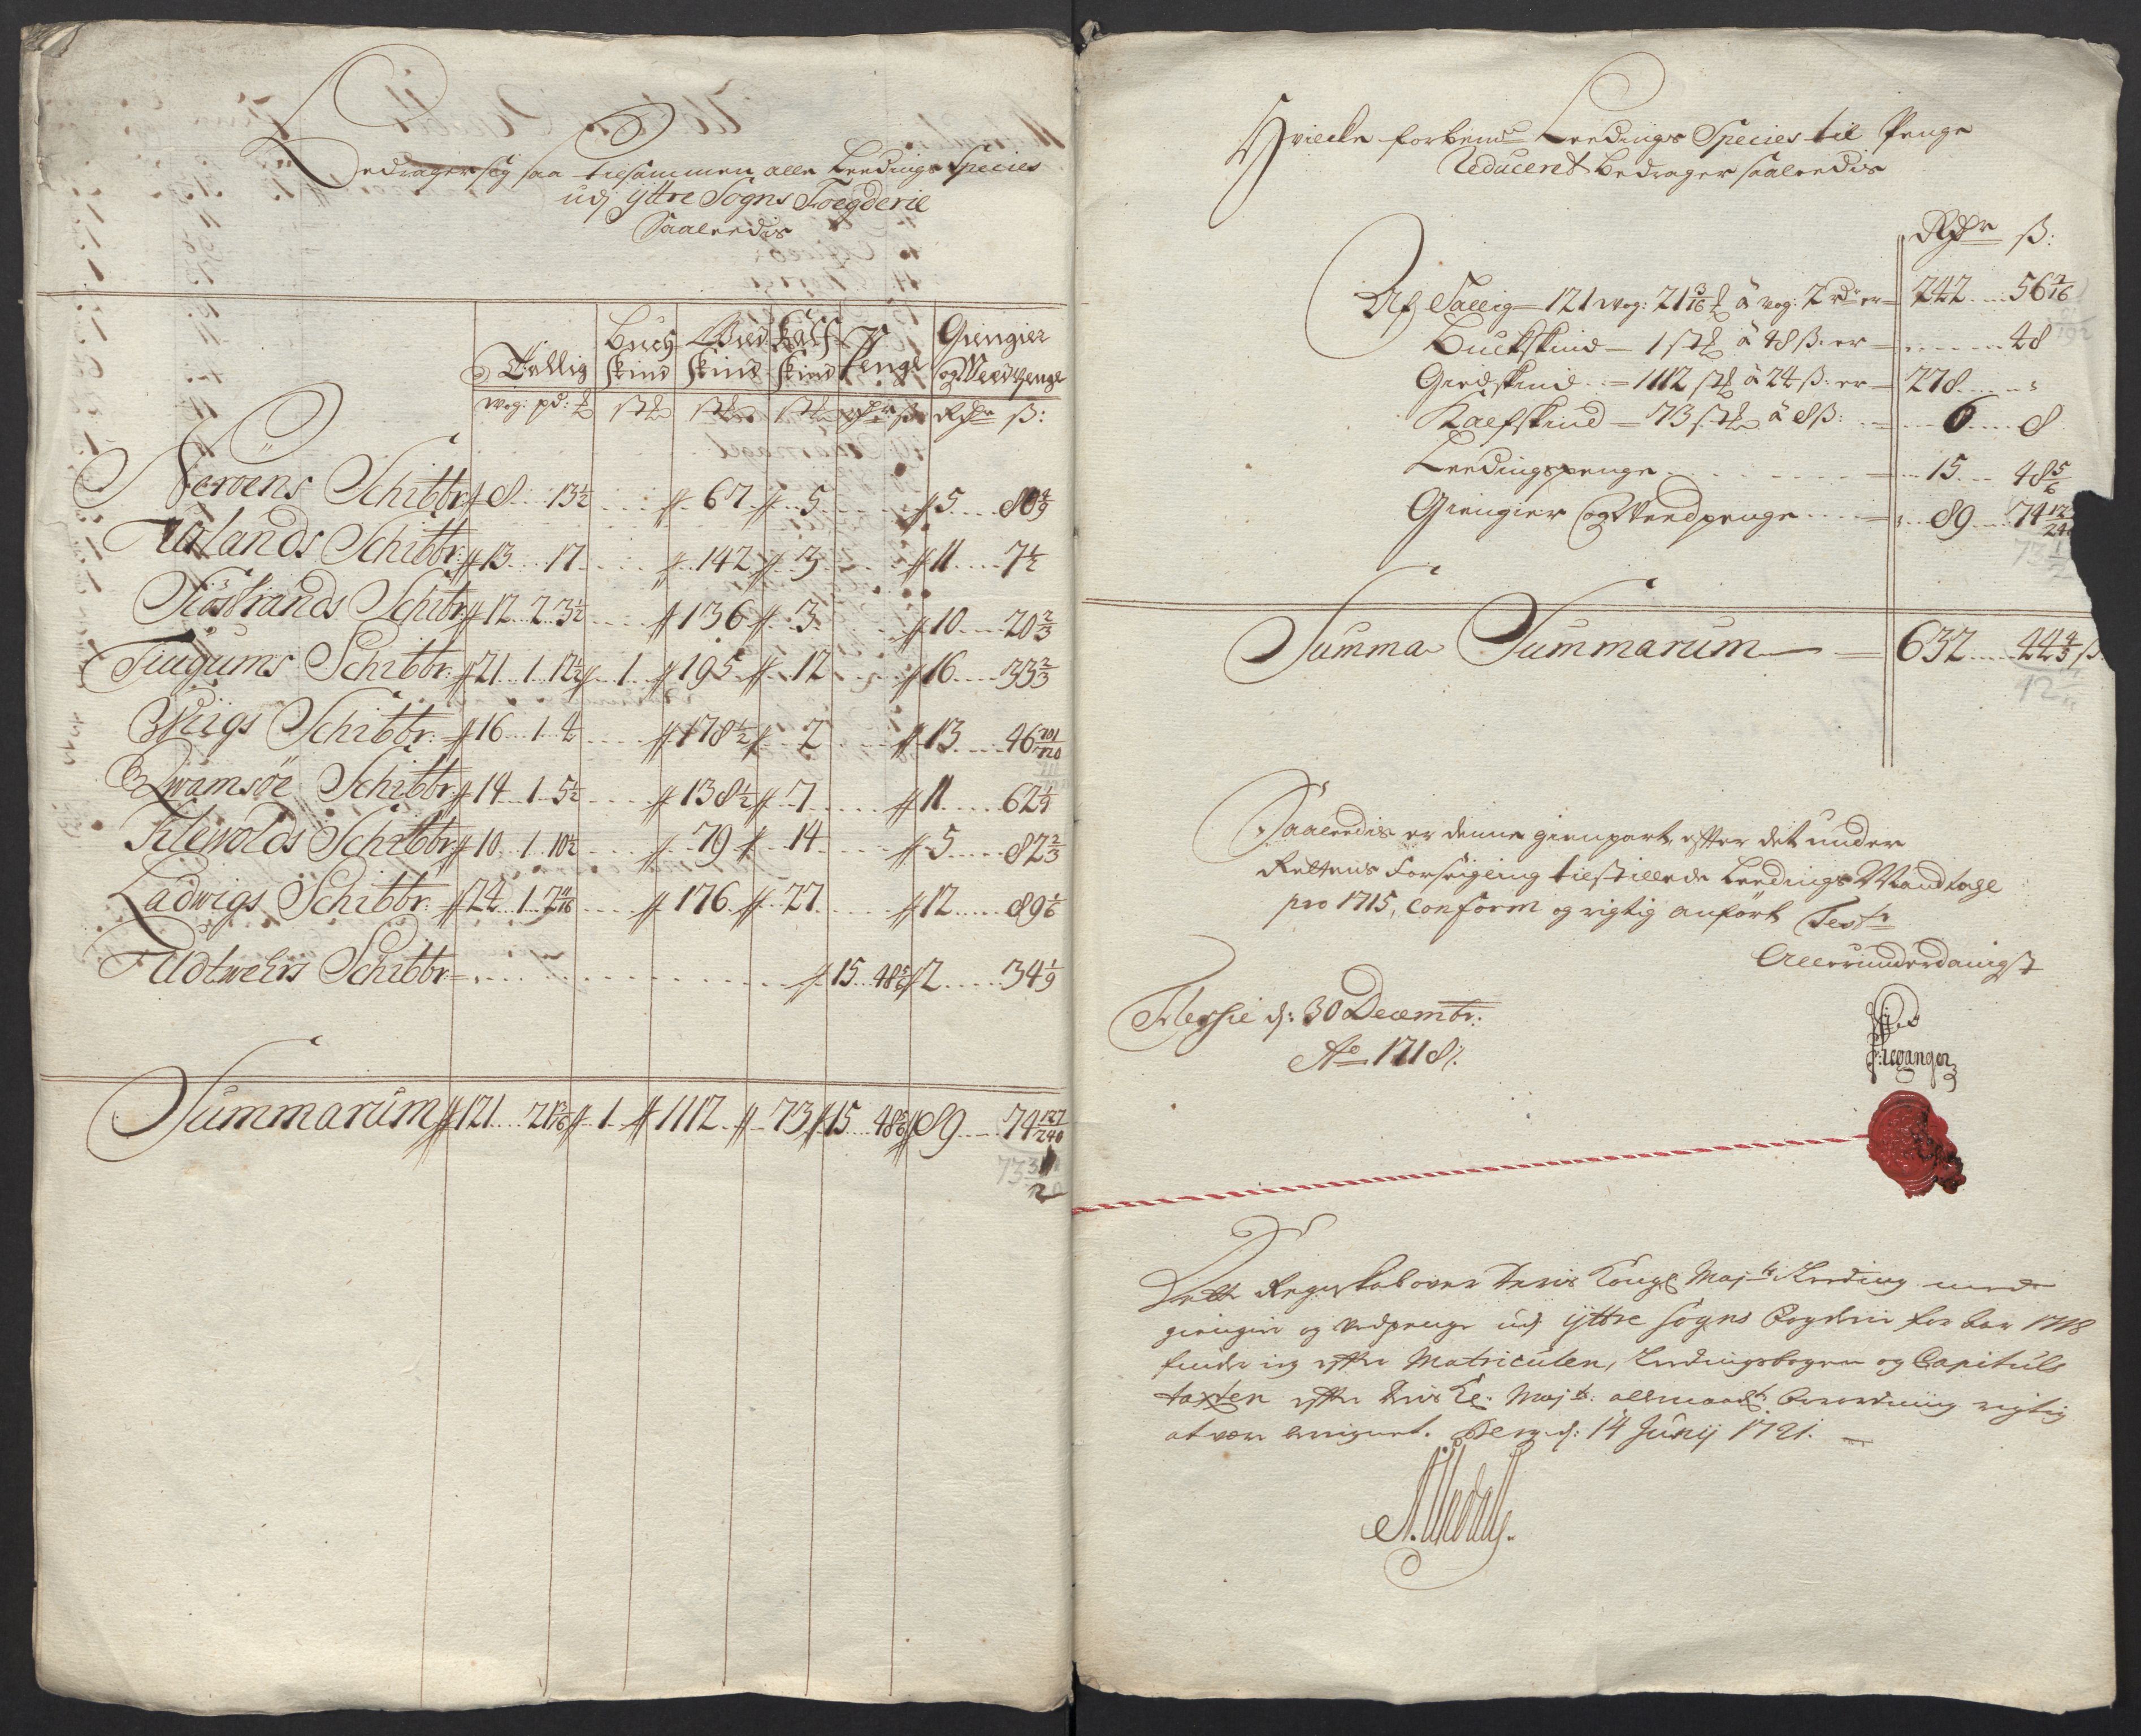 Bedrager sig saa tilsammen alle Leedings Species
udj Ÿttre Sogns Foegderie
Saaleedis
Tallig Buck skind Gied skind Kalf skind Penge Giengier og Weedpenge
Wog: pd: ℔ stk stk stk rdr ß Rdr ß:
Neröens Schibbr: 8 13½ 67 5 5 80 4/9
Urlands Schibbr: 13 17 142 3 11 7½
Siöstrands Schibbr: 12 2 3½ 136 3 10 20 2/3
Tingums Schibbr: 21 1 12½ 1 195 12 16 33 2/3
Wiigs Schibbr: 16 1 4 178½ 2 13 46 101/120
Qwamsöe Schibbr: 14 1 5½ 138½ 7 11 62 4/9
Klewolds Schibbr: 10 1 10½ 79 14 5 82 2/3
Ladwigs Schibbr: 24 1 2 11/16 176 27 12 89 1/6
Udtwehrs Schibbr: 15 48 5/6 2 34 1/9
Summarum 121 21 3/16 1 1112 73 15 48 5/6 89 74 127/240
73
Hvilcke forbemte Leedings Species til Penge
Reduceret bedrager saaleedis
Rdr ß:
Af Tallig 121 wog: 21 3/16 ℔ à wog: 2 rdr er 242 56 7/16
Buckskind 1 stk à 48 ß er 48
Giedskind 1112 stk à 24 ß: er 278 "
Kalfskind 73 stk à 8 ß: 6 8
Leedingspenge 15 48 5/6
Giengier og Weedpenge 89 74
Summa Summarum 632 44 4/5 ß
42
Saaleedis er denne gienpart, efter det under
Rettens Forseigling tilstillede Leedings Mandtall
pro 1715, conform og rigtig anført Test
Allerunderdanigst
Flessie d: 30 Decembr:
Ao 1718
Dette Regnskab over Deris Kongl Majts Leeding med
giengier og vedpenge udj Ÿttre Sogns Fogderie for aar 1718
finder ieg efter Matriculen, Leedingsbogen og Capituls
taxten efter Deris Kl: Majts: allernaadt Forordning rigtig
at være beregnet. Berg: d: 14 Junij 1721.